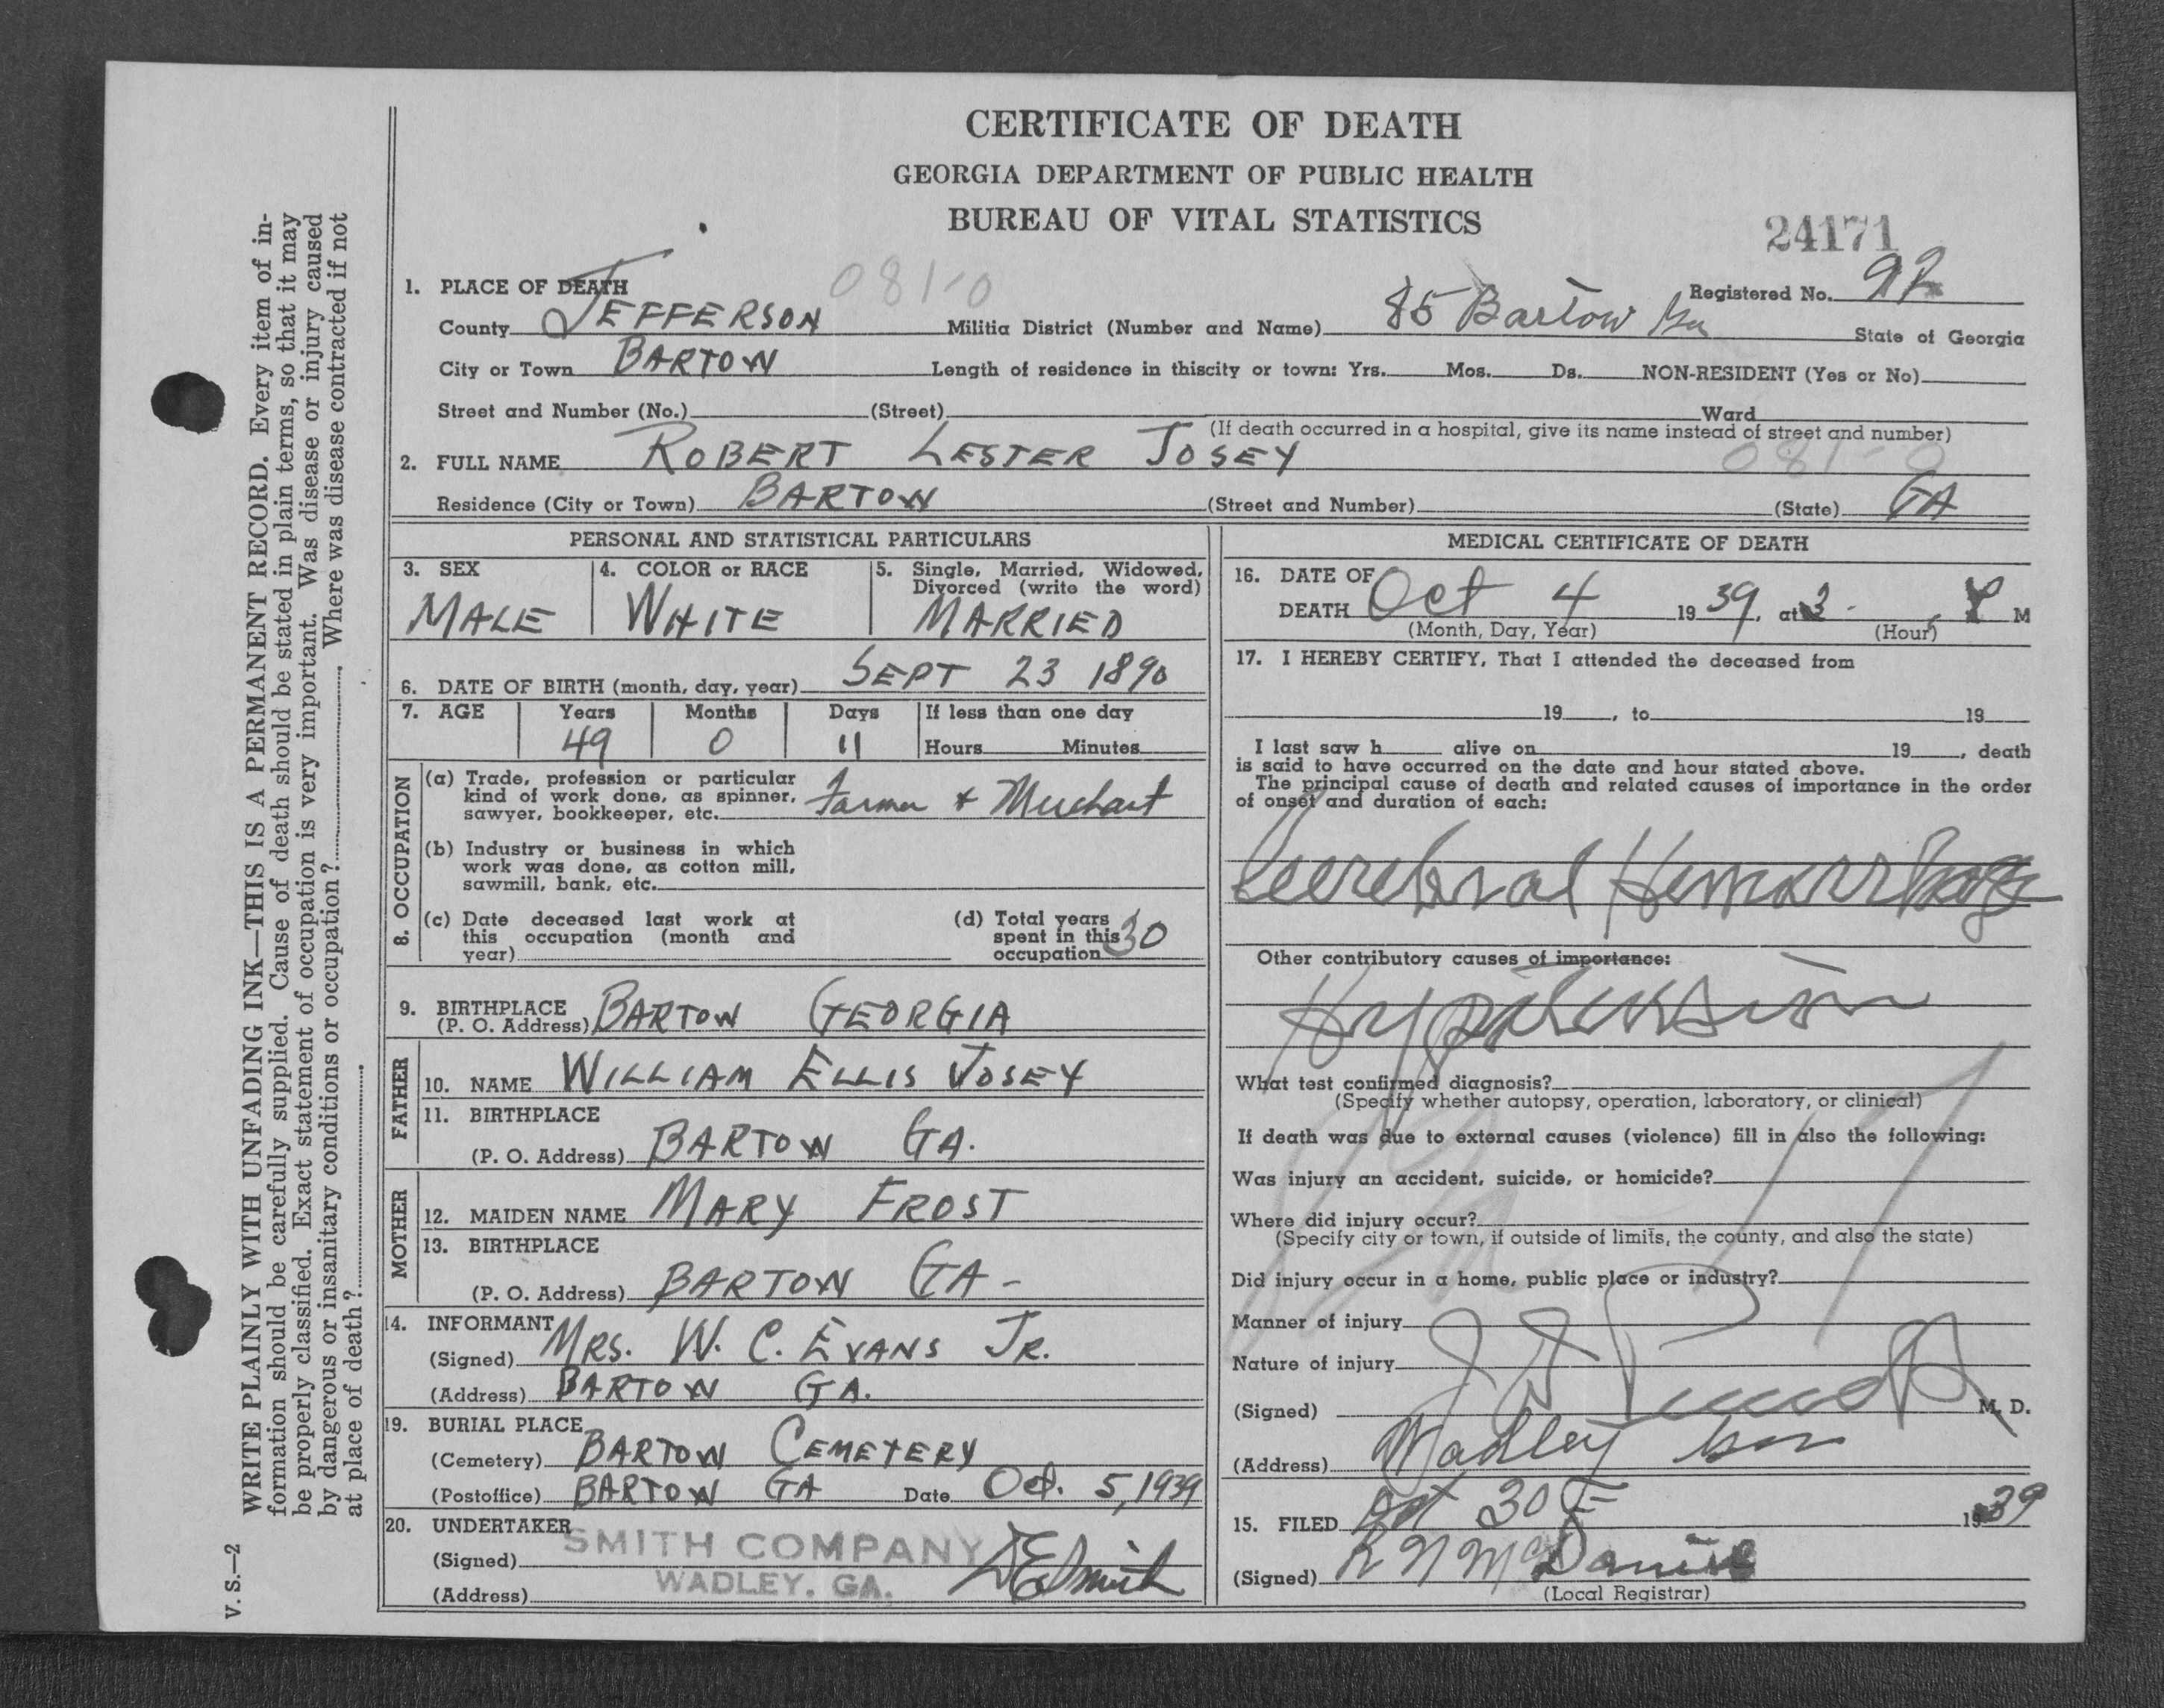 CERTIFICATE OF DEATH
GEORGIA DEPARTMENT OF PUBLIC HEALTH
BUREAU OF VITAL STATISTICS
24171
Registered No. 92
1. PLACE OF DEATH 081-0
County JEFFERSON Militia District (Number and Name) 85 Bartow Ga State of Georgia
City or Town BARTOW Length of residence in thiscity or town: Yrs. Mos. Ds. NON-RESIDENT (Yes or No)
Street and Number (No.) (Street) Ward
(If death occurred in a hospital, give its name instead of street and number)
2. FULL NAME ROBERT LESTER JOSEY 081-0
Residence (City or Town) BARTOW (Street and Number) (State) GA
PERSONAL AND STATISTICAL PARTICULARS
3. SEX MALE
4. COLOR or RACE WHITE
5. Single, Married, Widowed, Divorced (write the word) MARRIED
6. DATE OF BIRTH (month, day, year) SEPT 23 1890
7. AGE Years Months Days If less than one day
49 0 11 Hours Minutes
8. OCCUPATION
(a) Trade, profession or particular
kind of work done, as spinner,
sawyer, bookkeeper, etc. Farmer + Merchant
(b) Industry or business in which
work was done, as cotton mill,
sawmill, bank, etc.
(c) Date deceased last work at
this occupation (month and
year)
(d) Total years
spent in this
occupation 30
9. BIRTHPLACE
(P. O. Address) BARTOW GEORGIA
FATHER
10. NAME WILLIAM ELLIS JOSEY
11. BIRTHPLACE
(P. O. Address) BARTOW GA.
MOTHER
12. MAIDEN NAME MARY FROST
13. BIRTHPLACE
(P. O. Address) BARTOW GA-
14. INFORMANT
(Signed) MRS. W. C. EVANS JR.
(Address) BARTOW GA.
19. BURIAL PLACE
(Cemetery) BARTOW CEMETERY
(Postoffice) BARTOW GA Date Oct. 5, 1939
20. UNDERTAKER
(Signed) SMITH COMPANY Smith
(Address) WADLEY, GA.
MEDICAL CERTIFICATE OF DEATH
16. DATE OF
DEATH Oct 4 1939, at 3 - P M
(Month, Day, Year) (Hour)
17. I HEREBY CERTIFY, That I attended the deceased from
19 , to 19
I last saw h alive on 19 , death
is said to have occurred on the date and hour stated above.
The principal cause of death and related causes of importance in the order
of onset and duration of each:
Cerebral Hemorrhage
Other contributory causes of importance:
Hypertension
What test confirmed diagnosis?
(Specify whether autopsy, operation, laboratory, or clinical)
If death was due to external causes (violence) fill in also the following:
Was injury an accident, suicide, or homicide?
Where did injury occur?
(Specify city or town, if outside of limits, the county, and also the state)
Did injury occur in a home, public place or industry?
Manner of injury
Nature of injury
(Signed) M. D.
(Address) Wadley
15. FILED 30 1939
(Signed) R N McDaniel
(Local Registrar)
WRITE PLAINLY WITH UNFADING INK—THIS IS A PERMANENT RECORD. Every item of in-
formation should be carefully supplied. Cause of death should be stated in plain terms, so that it may
be properly classified. Exact statement of occupation is very important. Was disease or injury caused
by dangerous or insanitary conditions or occupation? Where was disease contracted if not
at place of death?
V. S.—2